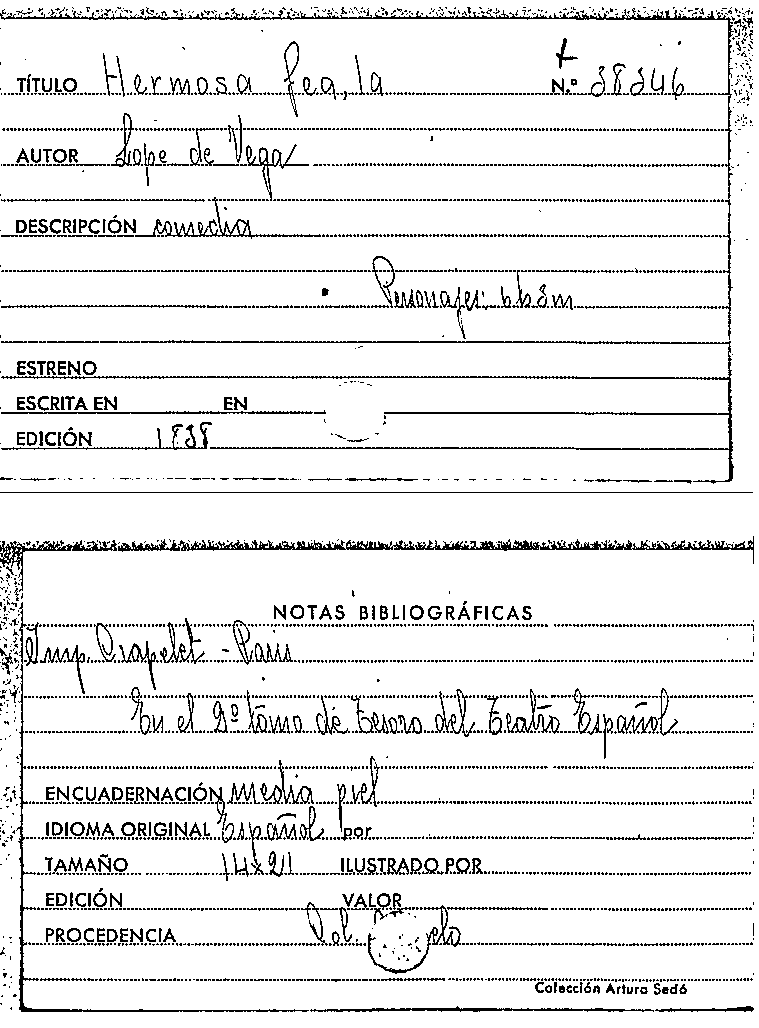 TÍTULO Hermosa fea, la N.º 38346
AUTOR Lope de Vega
DESCRIPCIÓN comedia
Personajes:
ESTRENO
ESCRITA EN EN
EDICIÓN 1838
NOTAS BIBLIOGRÁFICAS
Imp. Crapelet - Paris
En el 2º tomo de Tesoro del Teatro Español
ENCUADERNACIÓN media piel
IDIOMA ORIGINAL Español por
TAMAÑO 14x21 ILUSTRADO POR
EDICIÓN VALOR
PROCEDENCIA
Colección Arturo Sedó